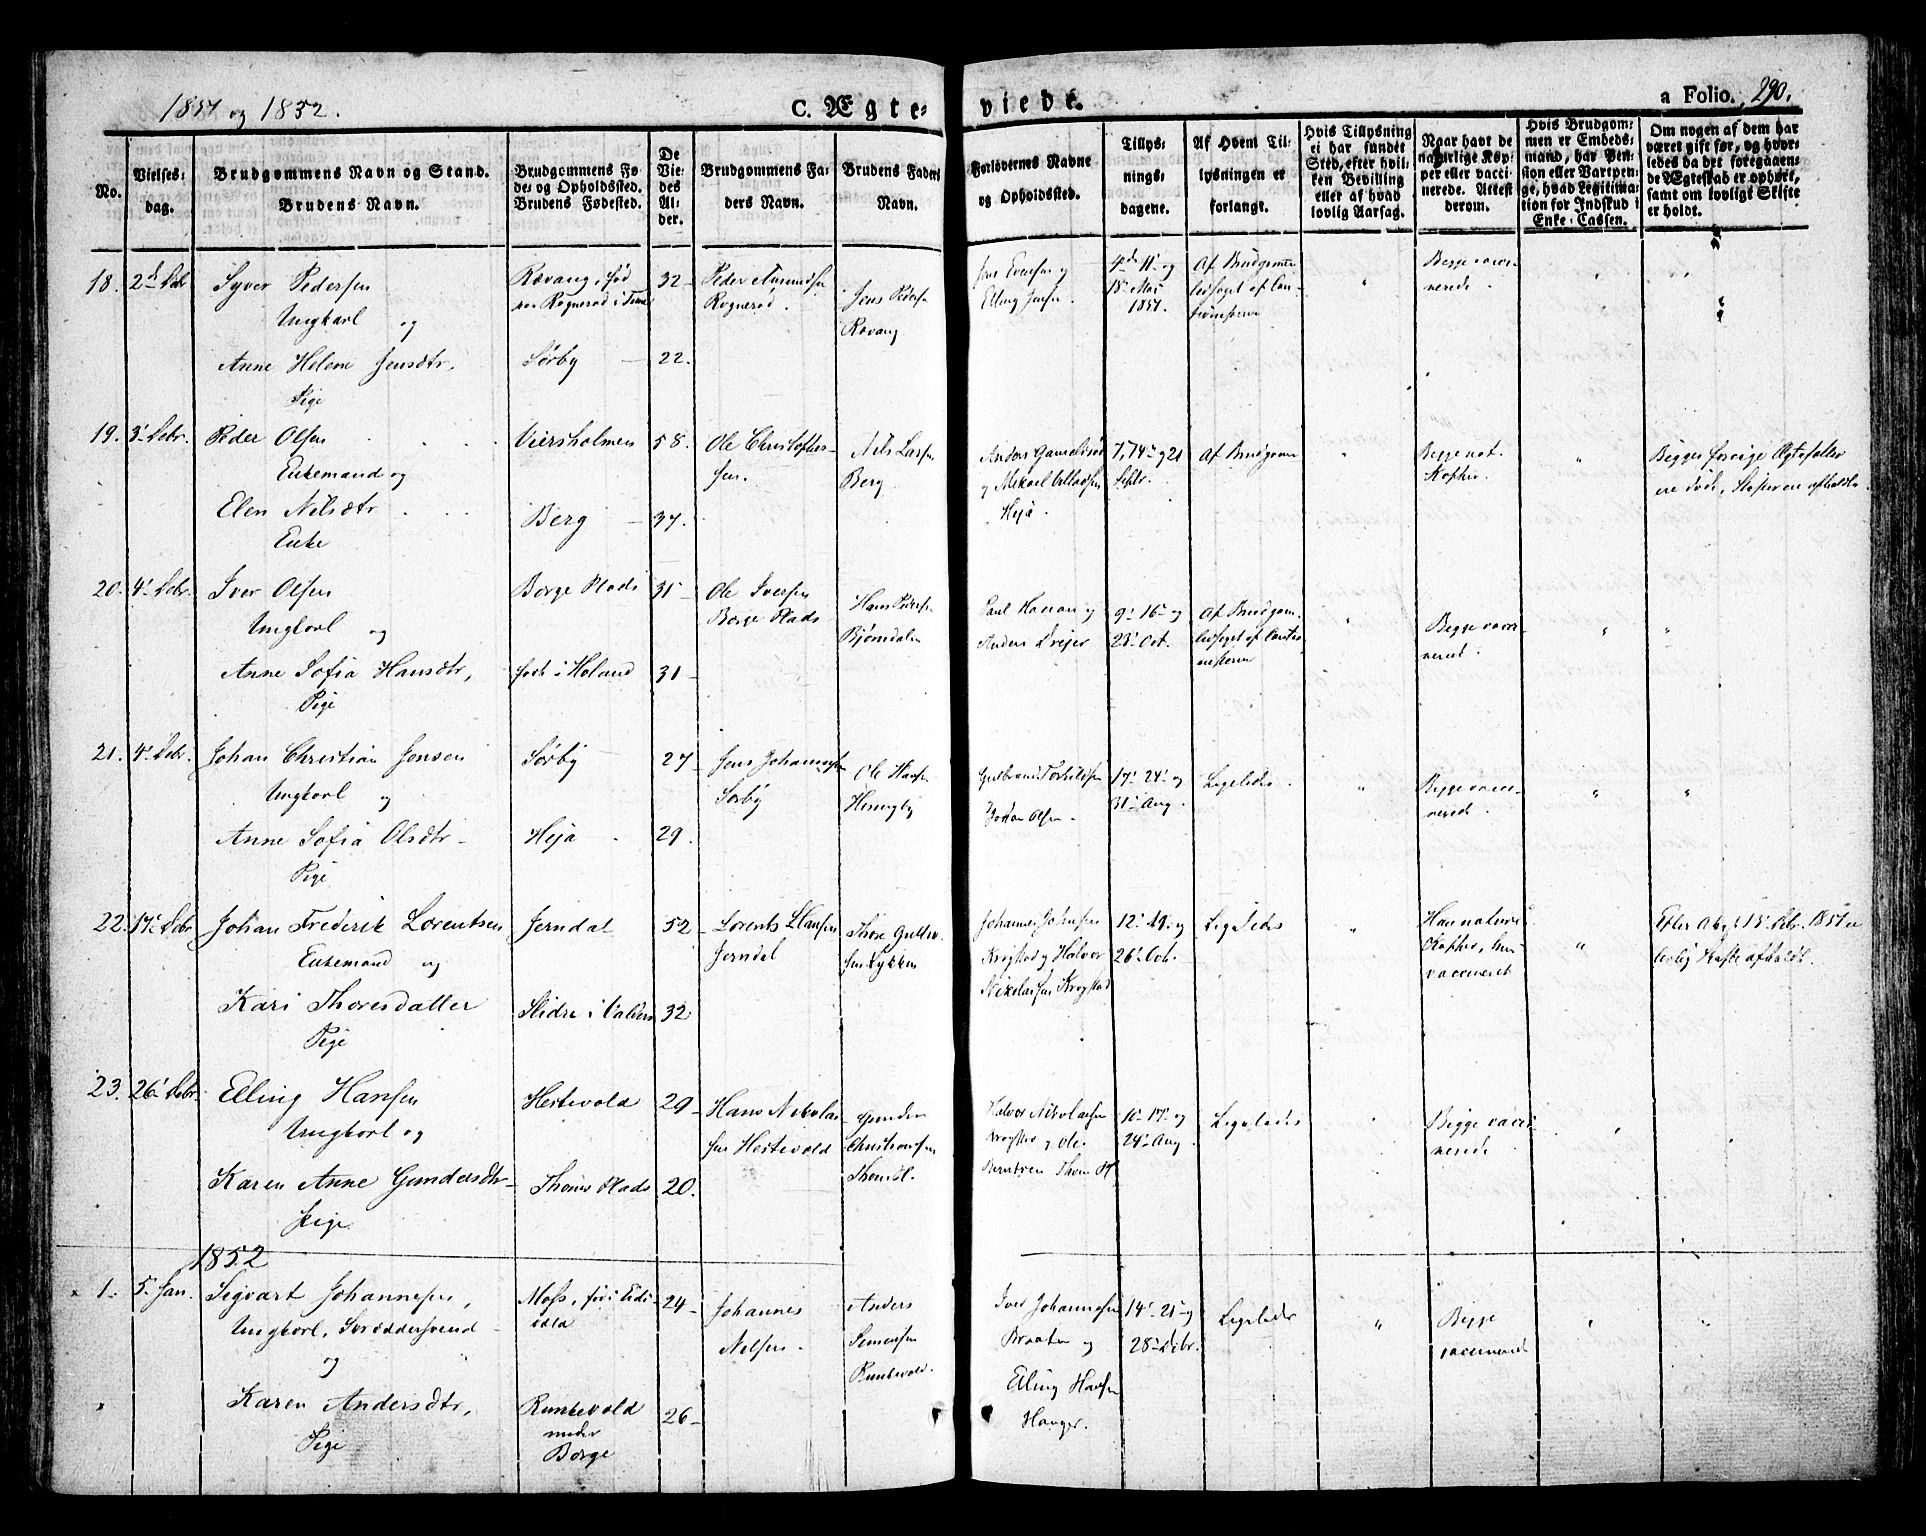 1851 og 1852.
C. Ægte-
viede.
a Folio. 290.
No.
Vielses-
dag.
Brudgommens Navn og Stand.
Brudens Navn.
Brudgommens Fø-
de- og Opholdssted.
Brudens Fødested.
De
Vie-
des
Al-
der.
Brudgommens Fa-
ders Navn.
Brudens Faders
Navn.
Forlovernes Navne
og Opholdssted.
Tillys-
nings-
dagene.
Af Hvem Til-
lysningen er
forlangt.
Hvis Tillysning
ei har fundet
Sted, efter hvil-
ken Bevilling
eller af hvad
lovlig Aarsag.
Naar havt de
naturlige Kop-
per eller vacci-
nerede. Attest
derom.
Hvis Brudgom-
men er Embeds-
mand, har Pen-
sion eller Vartpen-
ge, hvad Legitima-
tion for Indskud i
Enke-Cassen.
Om nogen af dem har
været gift før, og hvor-
ledes da det foregaaen-
de Ægteskab er ophørt,
samt om lovligt Skifte
er holdt.
18. 2 Debr
Syver Pedersen
Ungkarl og
Anne Helene Jensdtr,
Pige
Ravang, fød
Rognerød i Tune
Sørby
32
22.
Peder
Rognerød.
Jens Peders.
Ravang
Jens Evensen og
Elling Jensen.
4de 11' og
18' Mai
1851.
Af Brudgomme
ledsaget af
Begge vacci-
nerede.
19. 3' Debr.
Peder Olsen
Enkemand og
Elen Nilsdtr
Enke
Viersholmen
Berg
58.
37.
Ole Christophers-
sen.
Nils Larsen
Berg
Anders
og Mikael
Heja.
7, 14' og 21
Septr.
Af Brudgom
Begge nat.
Kopper.
Begges forrige Ægtefæller
ere døde, Skifterne afholdt.
20. 4' Debr.
Iver Olsen
Ungkarl og
Anne Sofia Hansdtr,
Pige
Borge Plads
født i Høland
31
31
Ole Iversen
Borge Plads
Hans Peders.
Bjørndalen
Paul og
Anders Dreier
9' 16' og
23' Oct.
Af Brudgom.
ledsaget af
Begge vacci-
neret.
21. 4' Debr.
Johan Christian Jensen
Ungkarl og
Anne Sofia Olsdtr
Pige
Sørby
Heja
27
29.
Jens Johannesen
Sørby
Ole Hansen
Heningby
Gulbrand Torkildsen
Johan Olsen.
17' 24' og
31' Aug.
Ligeledes.
Begge vacci-
nerede.
22. 17' Debr
Johan Frederik Lorentsen
Enkemand og
Kari Thoresdatter
Pige
Jerndal
Slidre i Valders
52
32
Lorents Hansen
Jerndal
Thore
Lykken
Johannes Johnsen
Krogstad og Halvor
Nikolaisen Krogstad
12' 19' og
26' Oct.
Ligeledes
Han naturl.
Kopper, hun
vaccineret
Efter Abegl 15' Debr. 1851 er
lovlig Skifte afholdt.
23. 26' Debr.
Elling Hansen
Ungkarl og
Karen Anne Gundersdtr
Pige
Hestevold
Thoms Plads
29
20.
Hans Nikolai-
sen Hestevold
Gunder
Christiansen
Halvor Nikolaisen
Krogstad og Ole
10' 17' og
24' Aug.
Ligeledes
Begge vacci-
nerede
1852
1. 5' Jan.
Sigvart Johannesen,
Ungkarl, Skræddersvend
og
Karen Andersdtr,
Pige
Moss, fød i Eids-
Runkevold
under
Borge
24
26
Johannes
Nilsen.
Anders
Simensen
Runkevold.
Iver Johannesen
Braaten og
Elling Hansen
Hauger.
14' 21' og
28' Debr.
Ligeledes
Begge
vaccineret